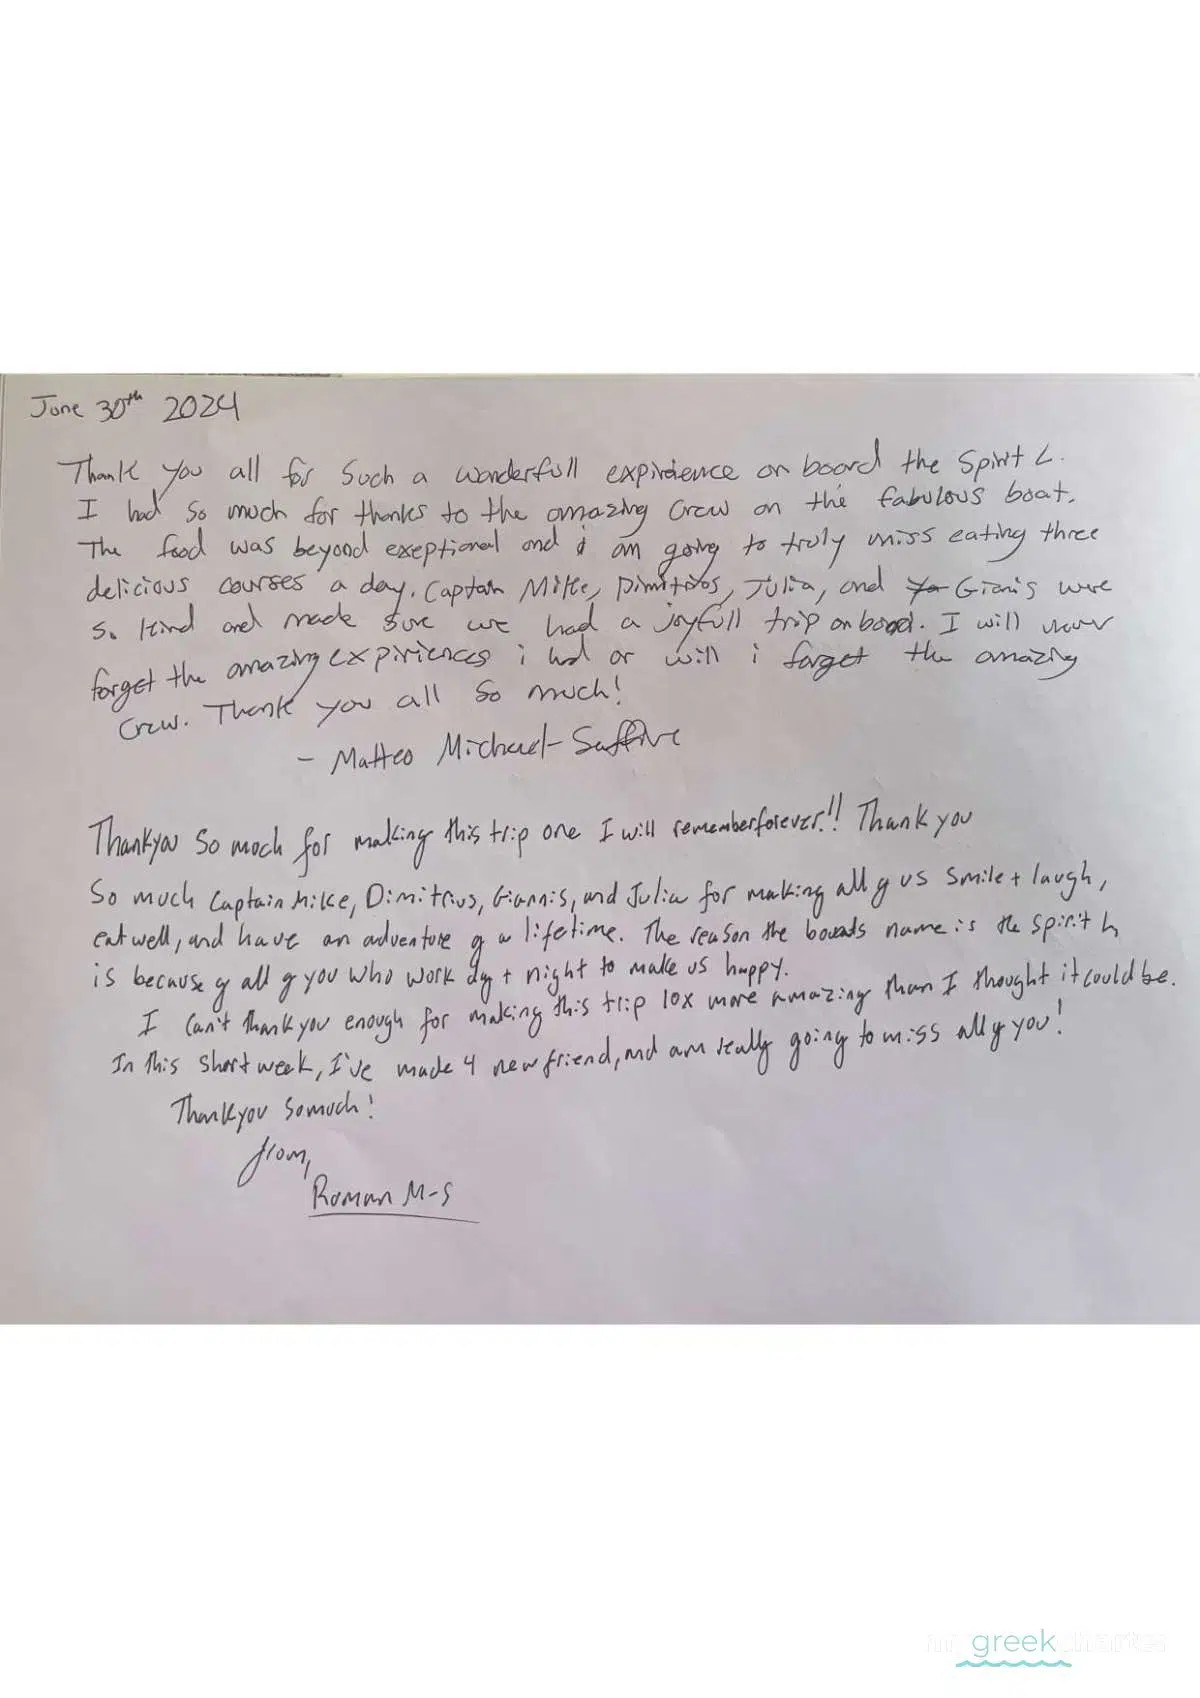 June 30th 2024
Thank you all for such a wonderfull expirdience on board the Spirit L.
I had so much for thanks to the amazing crew on the fabulous boat.
The food was beyond exeptional and i am going to truly miss eating three
delicious courses a day. Captain Mike, Dimitrios, Julia, and Ya Gianis were
so kind and made sure we had a joyfull trip on board. I will never
forget the amazing expiriences i had or will i forget the amazing
crew. Thank you all so much!
- Matteo Michael-
Thankyou so much for making this trip one I will remember forever!! Thank you
So much Captain Mike, Dimitrius, Giannis, and Julia for making all of us smile + laugh,
eat well, and have an adventure of a lifetime. The reason the boats name is the Spirit L
is because of all of you who work day + night to make us happy.
I can't thank you enough for making this trip 10x more amazing than I thought it could be.
In this short week, I've made 4 new friend, and am really going to miss all of you!
Thankyou so much!
from,
Roman M-S
greek